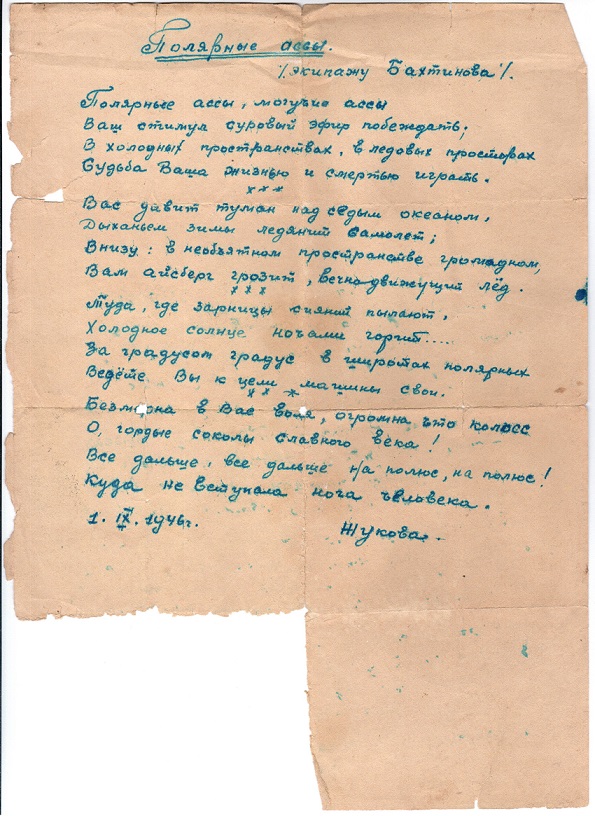 Полярные ассы.
/экипажу Бахтинова/.
Полярные ассы, могучие ассы
Ваш стимул суровый эфир побеждать;
В холодных пространствах, в ледовых просторах
Судьба Ваша жизнью и смертью играть.
х х х
Вас давит туман над седым океаном,
Дыханьем зимы ледянит самолет;
Внизу: в необъятном пространстве громадном,
Вам айсберг грозит, вечно движущий лёд.
х х х
Туда, где зарницы сияний пылают,
Холодное солнце ночами горит....
За градусом градус в широтах полярных
Ведёте Вы к цели машины свои.
х х х
Безмерна в Вас воля, огромна что колосс
О, гордые соколы славного века!
Все дальше, все дальше на полюс, на полюс!
Куда не вступала нога человека.
1. IX. 1946г.
Жукова.